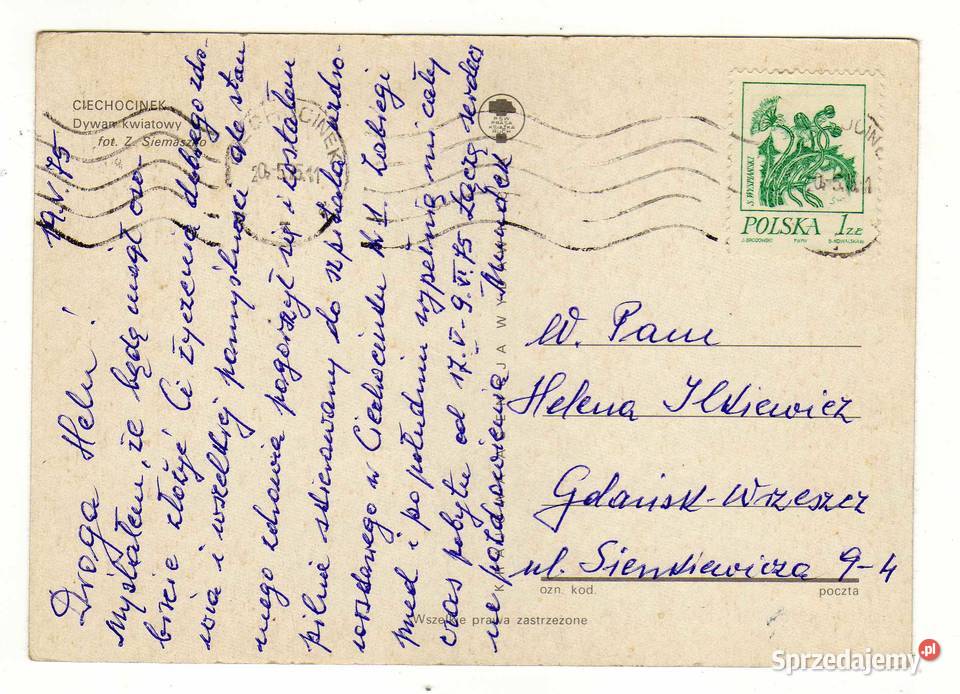 CIECHOCINEK
Dywan kwiatowy
fot. Z. Siemaszko
19.V.75
Droga Helu!
Myślałem, że będę mógł oso-
biście złożyć Ci życzenia dobrego zdro-
wia i wszelkiej pomyślności ale stan
mego zdrowia pogorszył się i zostałem
pilnie skierowany do szpitala uzdro-
wiskowego w Ciechocinku Nr II. Zabiegi
przed i po południu wypełnią mi cały
czas pobytu od 17.V-9.VI.75 Łączę serdecz
ne pozdrowienia Mundek
RSW
PRASA
KSIĄŻKA
RUCH
CIECHOCINEK
S. WYSPIAŃSKI
POLSKA 1 ZŁ
J. BRODOWSKI PWPW B. KOWALSKA
W. Pani
Helena Ilkiewicz
Gdańsk-Wrzeszcz
ul. Sienkiewicza 9-4
ozn. kod. poczta
Wszelkie prawa zastrzeżone
Sprzedajemy.pl